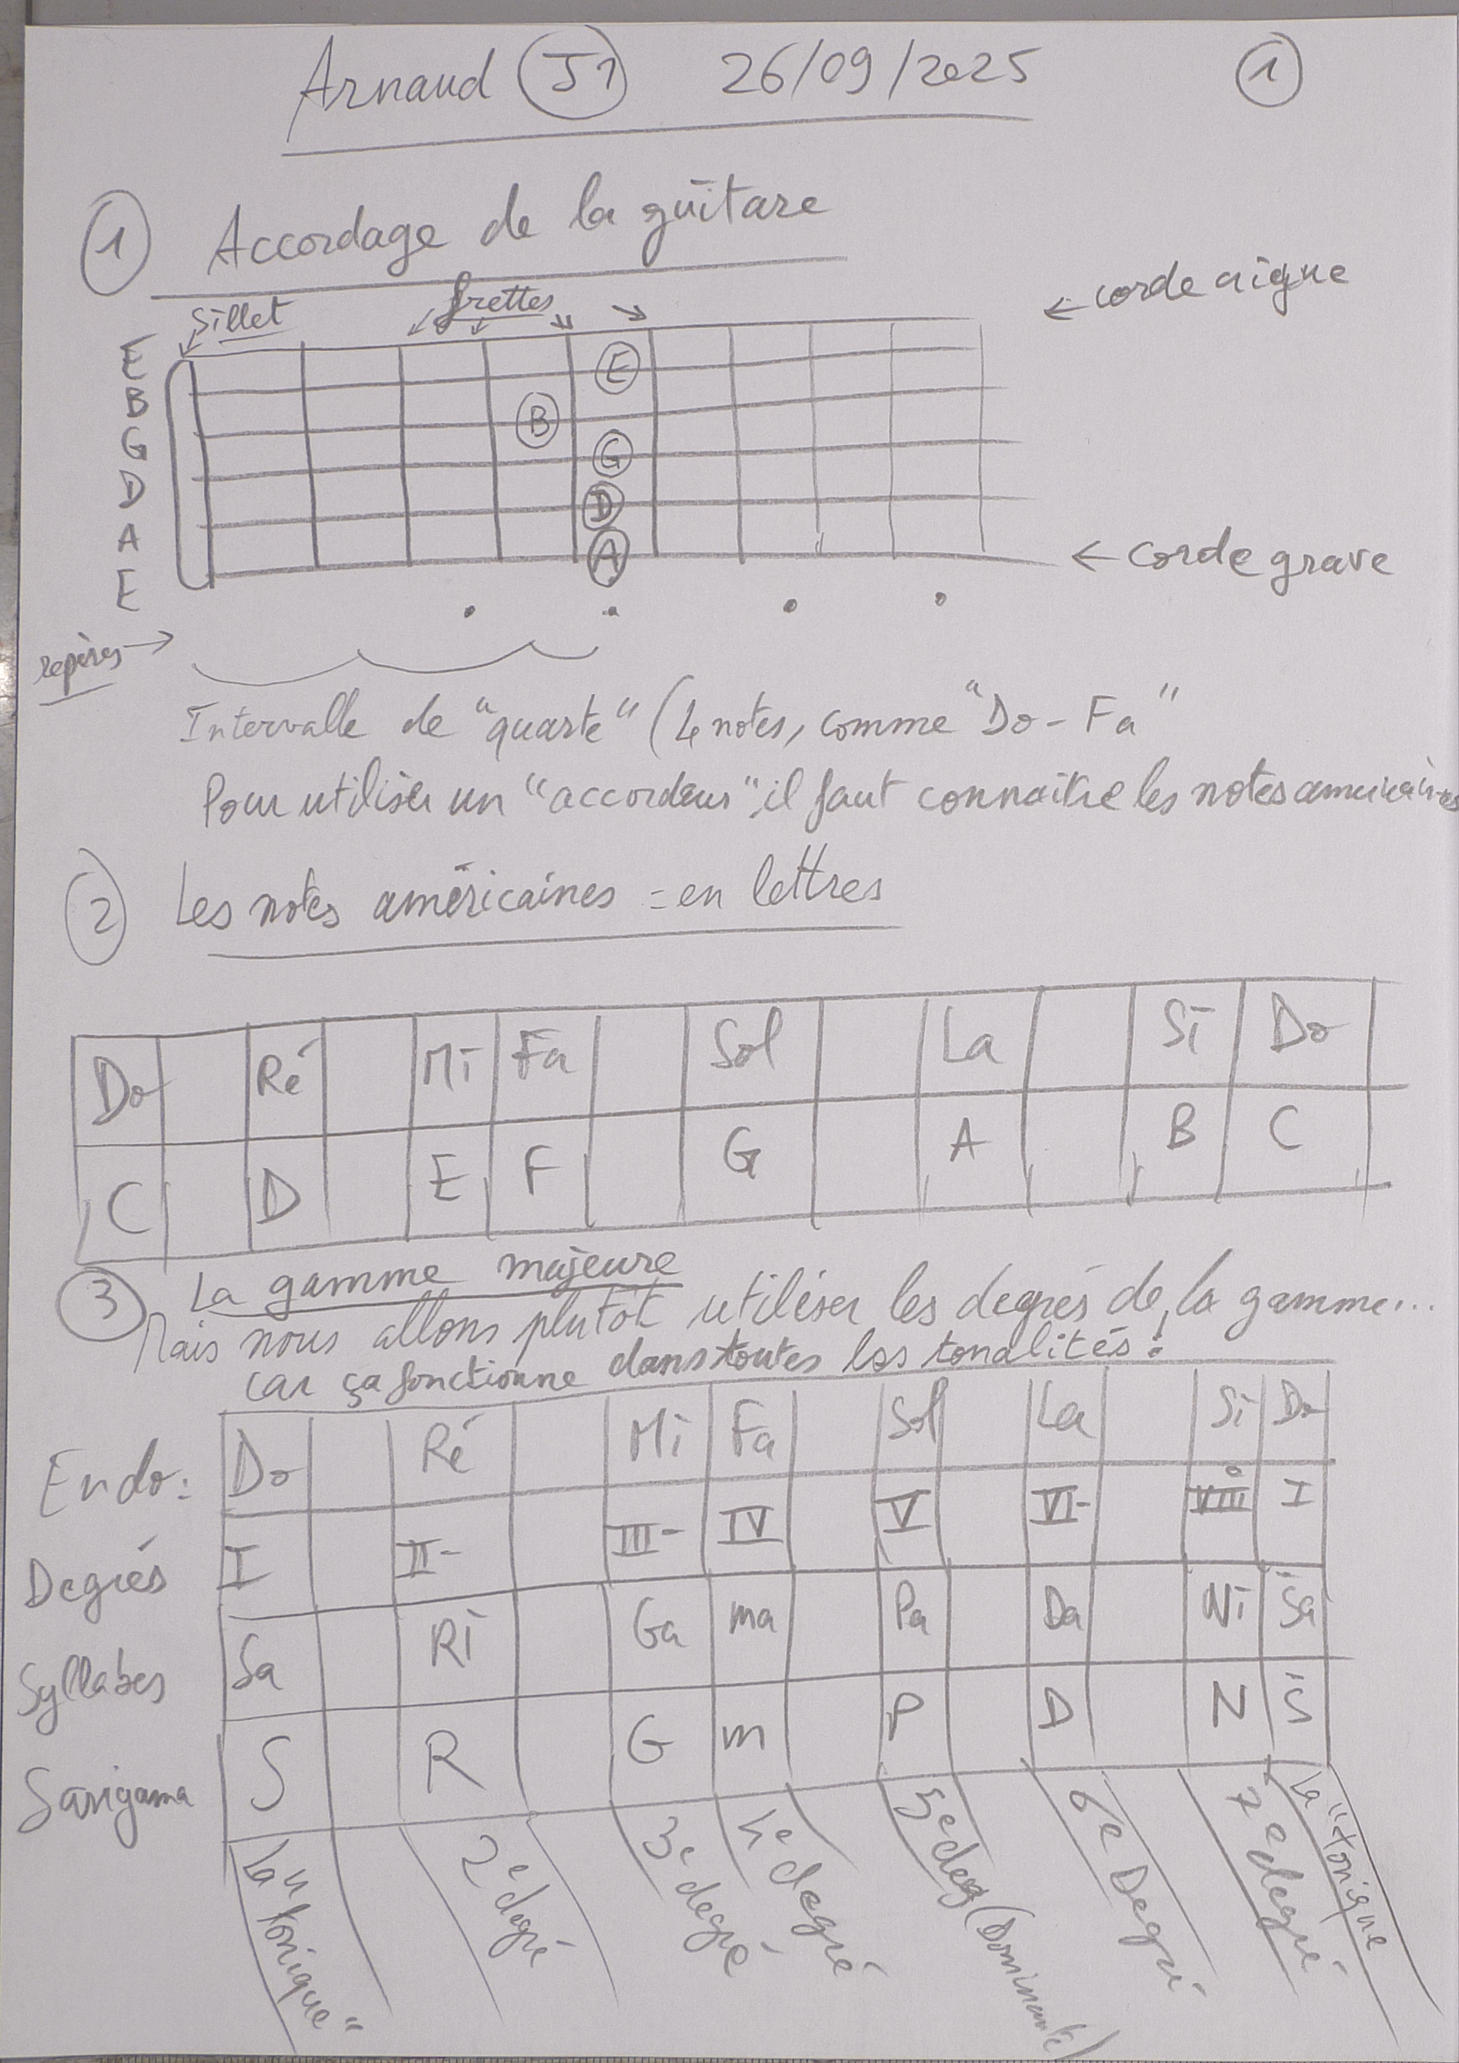 Arnaud J1 26/09/2025 1
1 Accordage de la guitare
sillet frettes
← corde aigue
E
B
G
D
A
E
E
B
G
D
A
← corde grave
repères →
Intervalle de "quarte" (4 notes, comme "Do - Fa"
Pour utiliser un "accordeur", il faut connaître les notes américaines
2 Les notes américaines = en lettres
Do Ré Mi Fa Sol La Si Do
C D E F G A B C
3 La gamme majeure
Mais nous allons plutôt utiliser les degrés de la gamme...
car ça fonctionne dans toutes les tonalités:
En do: Do Ré Mi Fa Sol La Si Do
Degrés I II- III- IV V VI- VIII° I
Syllabes Sa Ri Ga ma Pa Da Ni Ṡa
Sarigama S R G m P D N Ṡ
La "tonique" 2e degré 3e degré 4e degré 5e deg (Dominante) 6e Degré 7e degré La "tonique